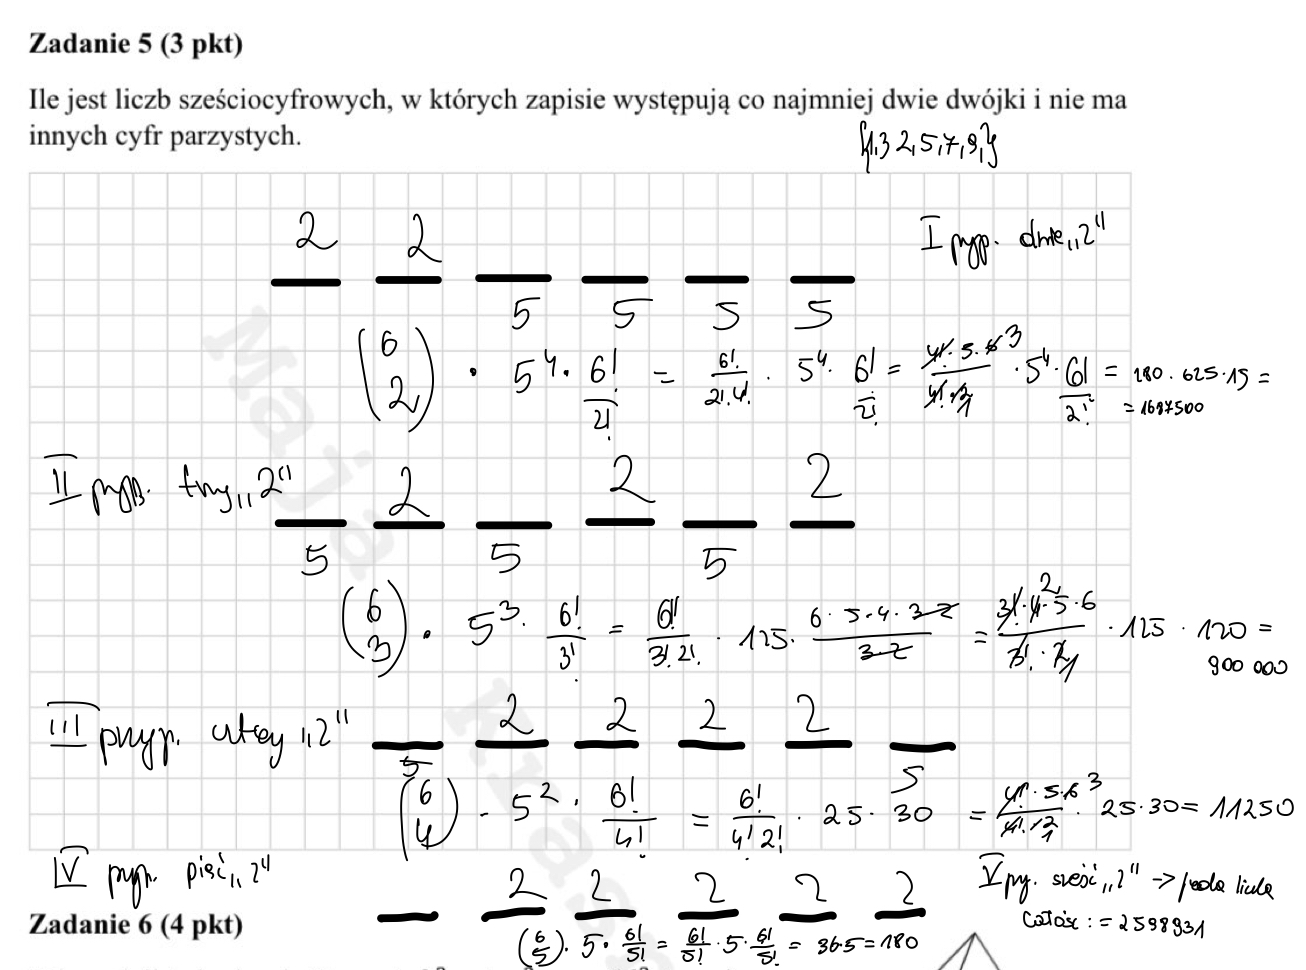 Zadanie 5 (3 pkt)
Ile jest liczb sześciocyfrowych, w których zapisie występują co najmniej dwie dwójki i nie ma
innych cyfr parzystych.
{1,3 2,5,7,9,}
2 2
I przyp. dwie „2"
5 5 5 5
(6 2) · 5^4 · 6!/2! = 6!/2!·4! · 5^4 · 6!/2! = 4!·5·6 3/4!·2 1 · 5^4 · 6!/2! = 180 · 625 · 15 =
= 1687500
II przyp. trzy „2"
2 2 2
5 5 5
(6 3) · 5^3 · 6!/3! = 6!/3!2! · 125 · 6·5·4·3·2/3·2 = 3!·4 2·5·6/3!·2 1 · 125 · 120 =
900 000
III przyp. cztery „2"
2 2 2 2
5 5
(6 4) · 5^2 · 6!/4! = 6!/4!2! · 25 · 30 = 4!·5·6 3/4!·2 1 · 25·30 = 11250
IV przyp. pięć „2"
2 2 2 2 2
V przy. sześć „2" -> jedna liczba
Całość := 2598931
Zadanie 6 (4 pkt)
(6 5) · 5 · 6!/5! = 6!/5! · 5 · 6!/5! = 36·5 = 180
Maja